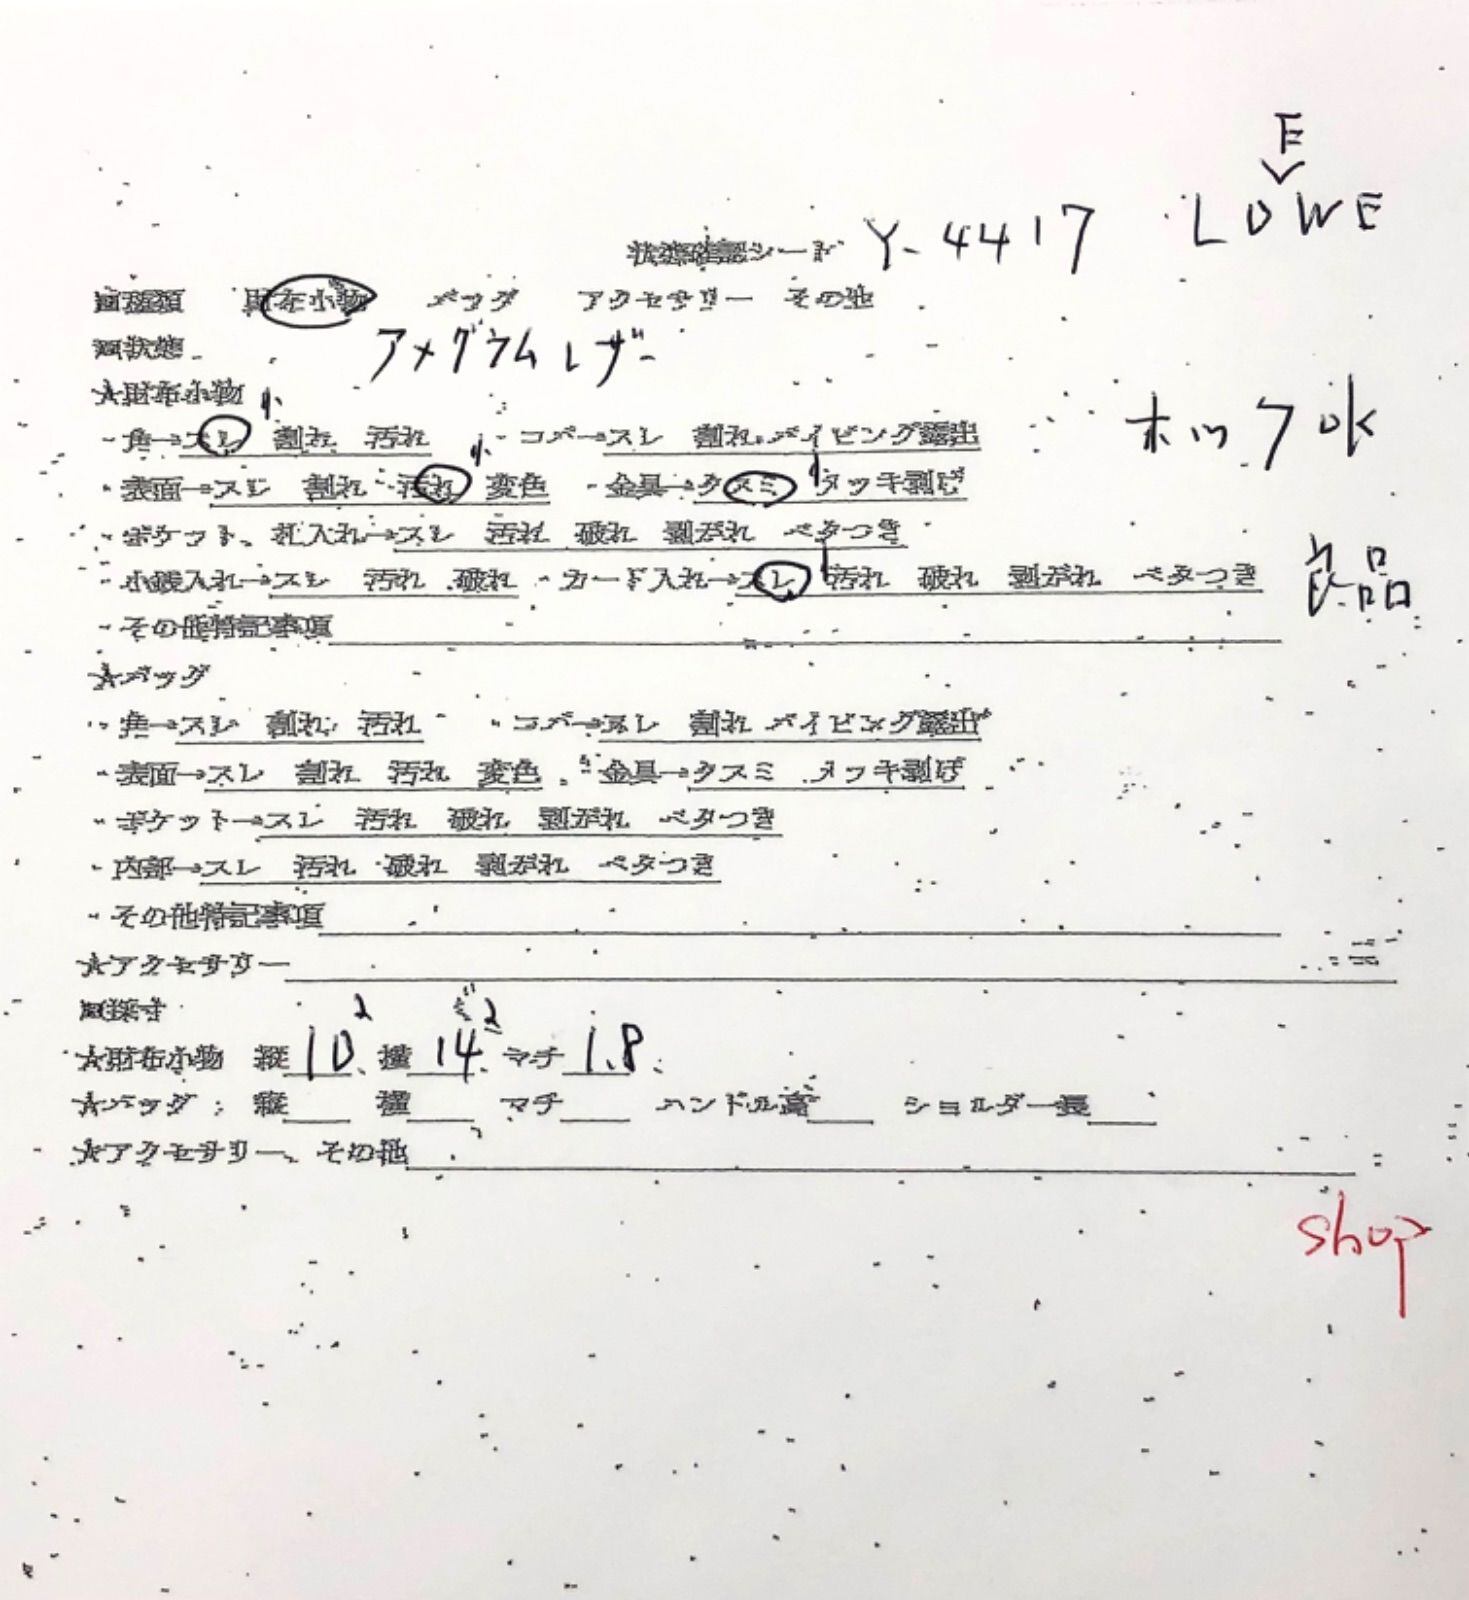 E
状態確認シート Y-4417 LOWE
■種類 財布小物 バッグ アクセサリー その他
■状態 アメグウムレザー
★財布小物 小
・角→スレ 割れ 汚れ ・コバ→スレ 割れ パイピング露出 ホック OK
小
・表面→スレ 割れ 汚れ 変色 ・金具→クスミ メッキ剥げ
・ポケット、札入れ→スレ 汚れ 破れ 剥がれ ベタつき
・小銭入れ→スレ 汚れ 破れ ・カード入れ→スレ 汚れ 破れ 剥がれ ベタつき 良品
・その他特記事項
★バッグ
・角→スレ 割れ 汚れ ・コバ→スレ 割れ パイピング露出
・表面→スレ 割れ 汚れ 変色 ・金具→クスミ メッキ剥げ
・ポケット→スレ 汚れ 破れ 剥がれ ベタつき
・内部→スレ 汚れ 破れ 剥がれ ベタつき
・その他特記事項
★アクセサリー
■採寸
★財布小物 縦 10.2 横 14.2 マチ 1.8
★バッグ 縦 横 マチ ハンドル高 ショルダー長
★アクセサリー、その他
shop